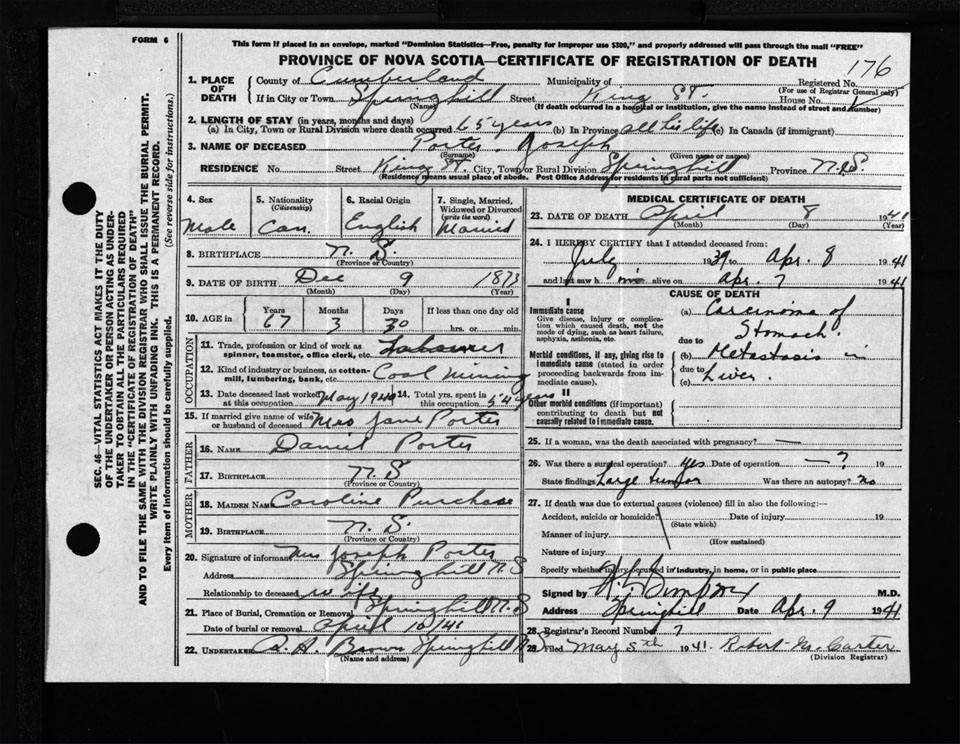 FORM 6
This form if placed in an envelope, marked "Dominion Statistics—Free, penalty for improper use $300," and properly addressed will pass through the mail "FREE"
PROVINCE OF NOVA SCOTIA—CERTIFICATE OF REGISTRATION OF DEATH
176
1. PLACE OF DEATH County of Cumberland Municipality of Registered No.
(For use of Registrar General only)
If in City or Town Springhill Street King St. House No.
(Name) (If death occurred in a hospital or institution, give the name instead of street and number)
2. LENGTH OF STAY (in years, months and days)
(a) In City, Town or Rural Division where death occurred 65 years (b) In Province all his life (c) In Canada (if immigrant)
3. NAME OF DECEASED Porter Joseph
(Surname) (Given name or names)
RESIDENCE No. Street King St. City, Town or Rural Division Springhill Province N.S.
(Residence means usual place of abode. Post Office Address for residents in rural parts not sufficient)
4. Sex Male
5. Nationality (Citizenship) Can.
6. Racial Origin English
7. Single, Married, Widowed or Divorced (write the word) Married
8. BIRTHPLACE N. S.
(Province or Country)
9. DATE OF BIRTH Dec 9 1873
(Month) (Day) (Year)
10. AGE in Years Months Days If less than one day old
67 3 30 hrs. or min.
OCCUPATION
11. Trade, profession or kind of work as spinner, teamster, office clerk, etc. Labourer
12. Kind of industry or business, as cotton-mill, lumbering, bank, etc. Coal Mining
13. Date deceased last worked at this occupation May 1940
14. Total yrs. spent in this occupation 54 years
15. If married give name of wife or husband of deceased Mrs Jane Porter
FATHER
16. NAME Daniel Porter
17. BIRTHPLACE N. S
(Province or Country)
MOTHER
18. MAIDEN NAME Caroline Purchase
19. BIRTHPLACE N. S.
(Province or Country)
20. Signature of informant Mrs Joseph Porter
Address Springhill N.S
Relationship to deceased wife
21. Place of Burial, Cremation or Removal Springhill N.S
Date of burial or removal April 10/41
22. UNDERTAKER A. H. Brown Springhill N.S
(Name and address)
MEDICAL CERTIFICATE OF DEATH
23. DATE OF DEATH April 8 1941
(Month) (Day) (Year)
24. I HEREBY CERTIFY that I attended deceased from:
July 1939 to Apr. 8 1941
and last saw h im alive on Apr. 7 1941
CAUSE OF DEATH
I
Immediate cause
Give disease, injury or complication which caused death, not the mode of dying, such as heart failure, asphyxia, asthenia, etc.
(a) Carcinoma of Stomach
due to
Morbid conditions, if any, giving rise to immediate cause (stated in order proceeding backwards from immediate cause).
(b) Metastasis in
due to
(c) Liver.
II
Other morbid conditions (if important) contributing to death but not causally related to immediate cause.
25. If a woman, was the death associated with pregnancy? —
26. Was there a surgical operation? yes Date of operation —? 19
State findings Large tumor Was there an autopsy? no
27. If death was due to external causes (violence) fill in also the following:—
Accident, suicide or homicide? Date of injury 19
(State which)
Manner of injury
(How sustained)
Nature of injury
Specify whether injury occurred in industry, in home, or in public place
Signed by M.D.
Address Springhill Date Apr. 9 1941
28. Registrar's Record Number 7
29. Filed May 5th 1941. Robert M. Carter
(Division Registrar)
SEC. 46—VITAL STATISTICS ACT MAKES IT THE DUTY
OF THE UNDERTAKER OR PERSON ACTING AS UNDERTAKER TO OBTAIN ALL THE PARTICULARS REQUIRED
IN THE "CERTIFICATE OF REGISTRATION OF DEATH"
AND TO FILE THE SAME WITH THE DIVISION REGISTRAR WHO SHALL ISSUE THE BURIAL PERMIT.
WRITE PLAINLY WITH UNFADING INK. THIS IS A PERMANENT RECORD.
Every item of information should be carefully supplied. (See reverse side for instructions.)